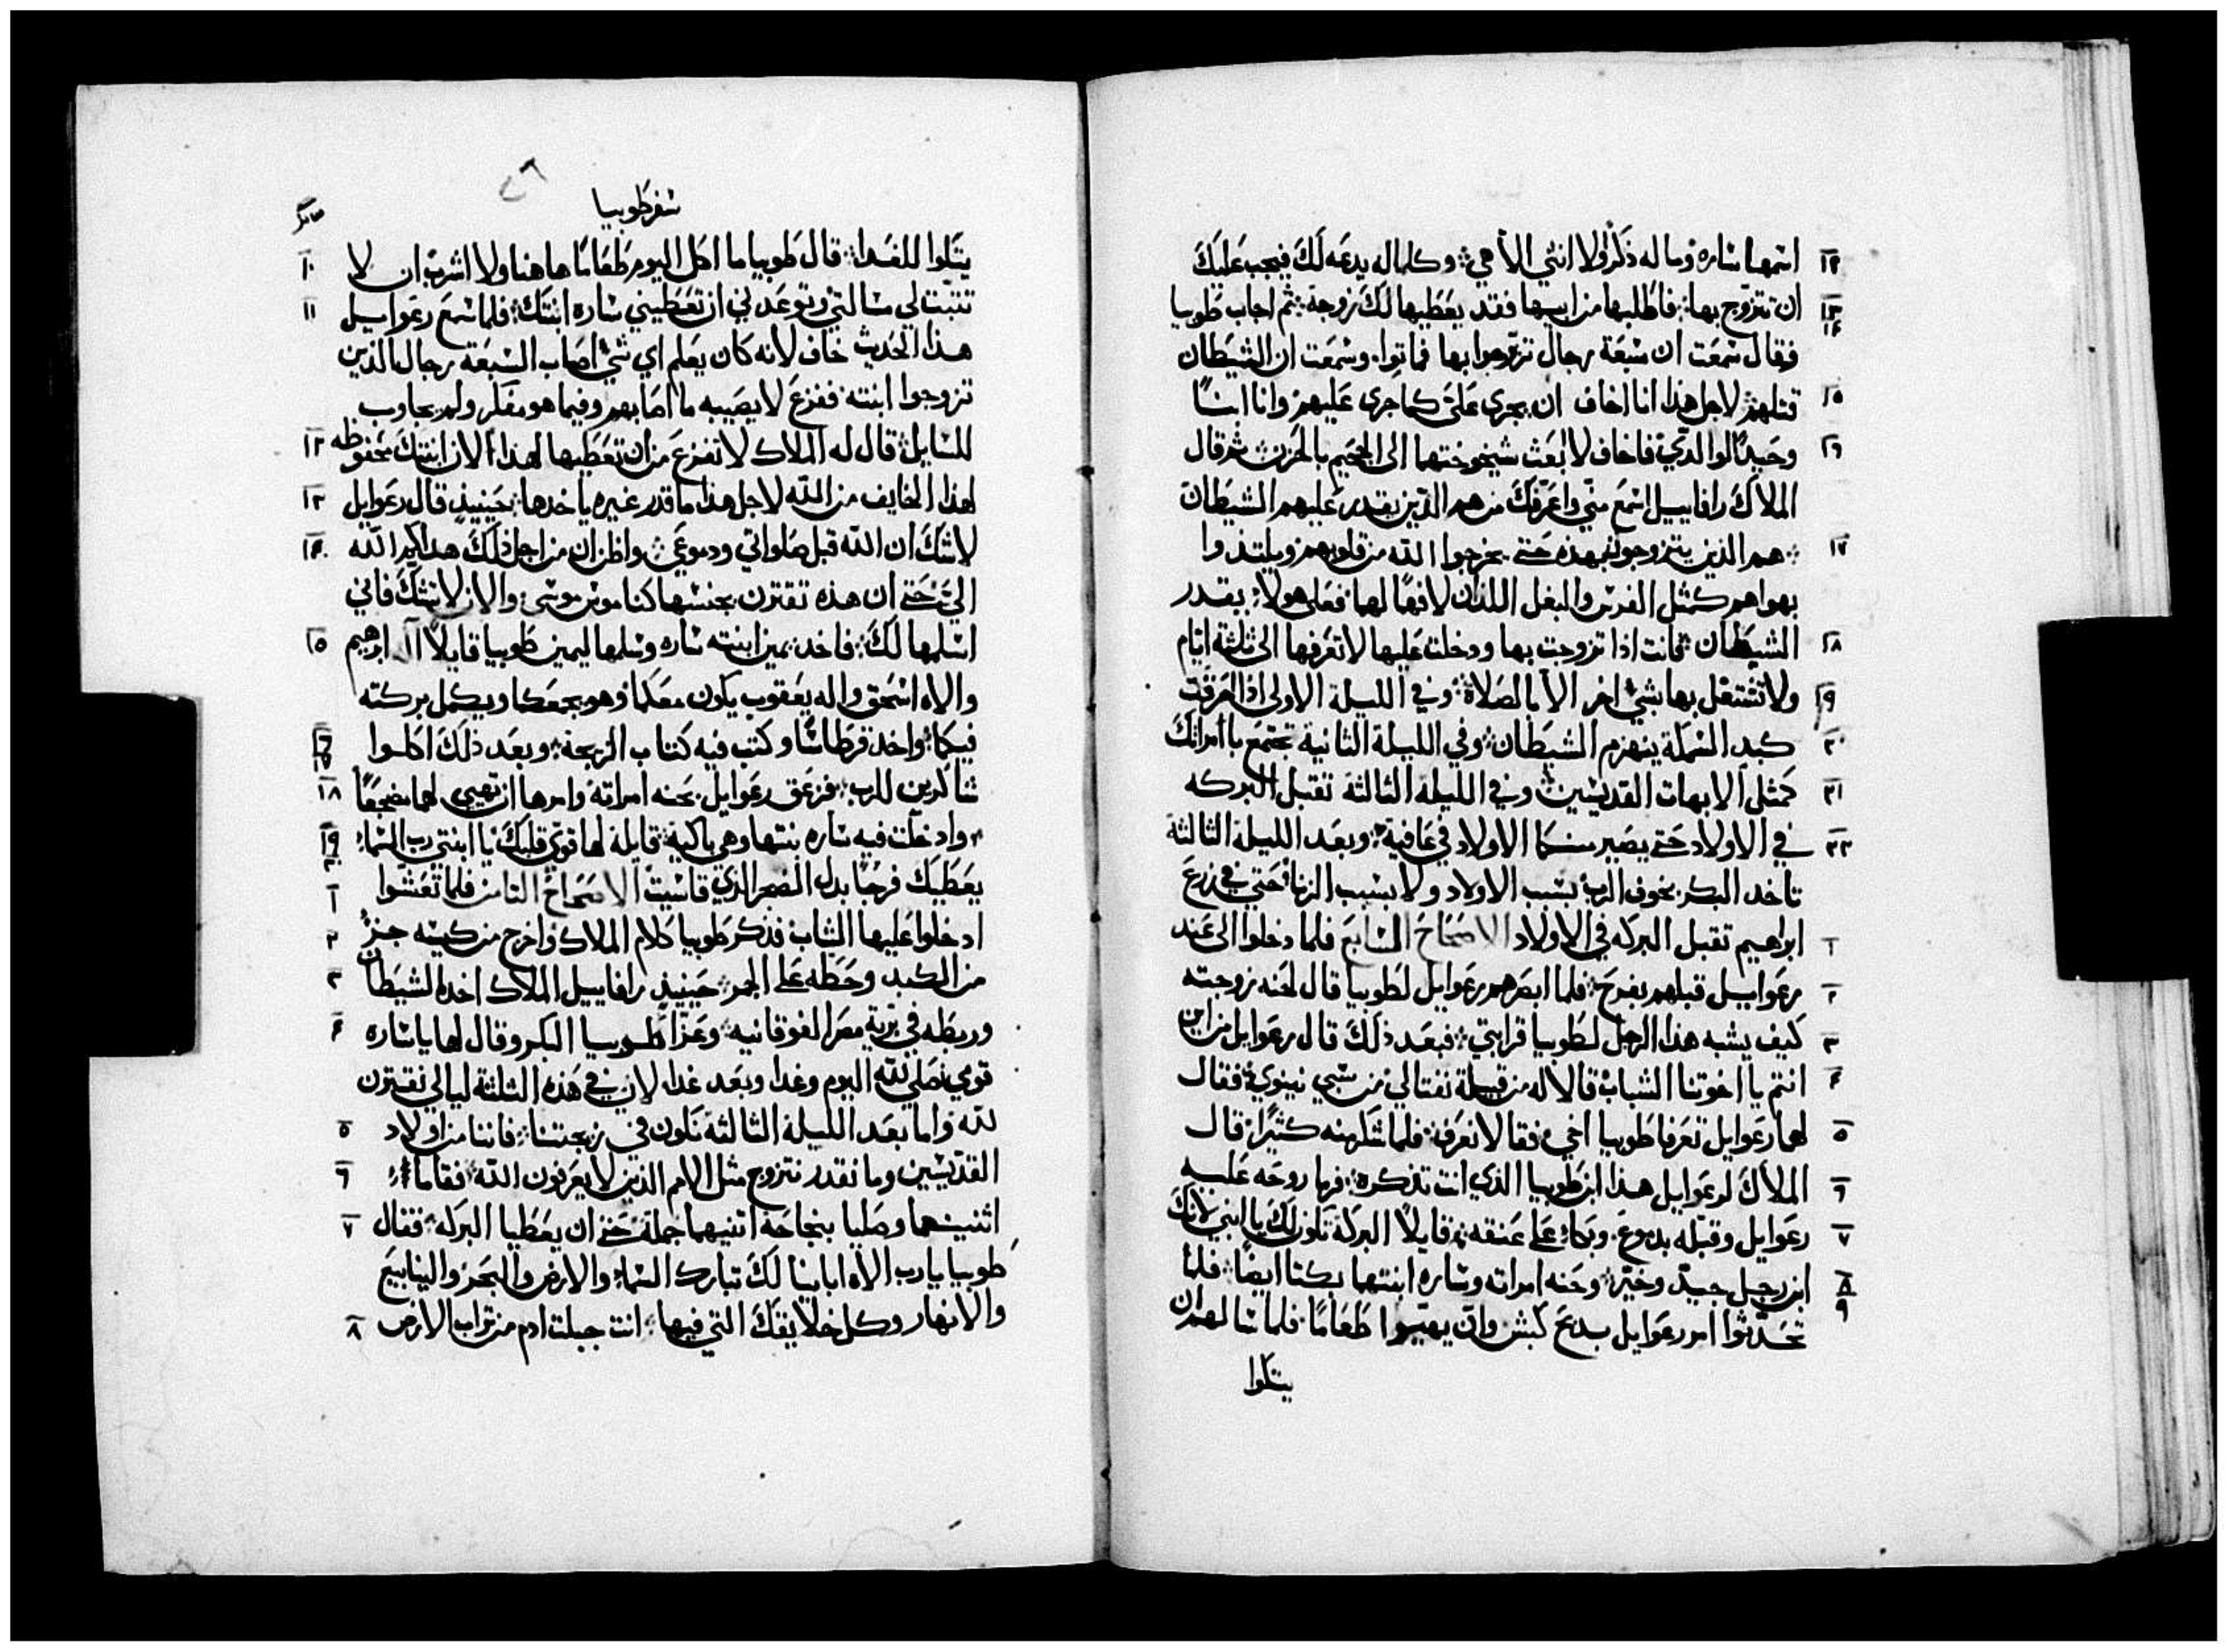 ١٢ اسمها ساره وما له ذكرًا ولا انثي الا هي وكلما له يدعه لك فيجب عليك
١٣ ١٤ ان تتزوج بها فاطلبها من ابيها فقد يعطيها لك زوجة ثم اجاب طوبيا
فقال سمعت ان سبعة رجال تزوجوا بها فماتوا وسمعت ان الشيطان
١٥ قتلهم لاجل هذا انا اخاف ان يجرى علىّ كما جرى عليهم وانا ابنًا
١٦ وحيدًا لوالديّ فاخاف لا ابعث شيخوختهما الى الجحيم بالحزن ثم قال
الملاك رافاييل اسمع منّي واعرّفك من هم الذين يقدر عليهم الشيطان
١٧ هم الذين يتزوجون بهذه حتي يخرجوا الله من قلوبهم ويلتذوا
بهواهم كمثل الفرس والبغل اللذان لا فهمًا لهما فعلى هولاء يقدر
١٨ الشيطان فانت اذا تزوجت بها ودخلت عليها لا تعرفها الى ثلثة ايام
١٩ ولا تشتغل بها بشي اخر الا بالصلاة وفي الليلة الاولى اذا احرقت
٢٠ كبد السمكة ينهزم الشيطان وفي الليلة الثانية تجتمع بامراتك
٢١ كمثل الابهات القديسين وفي الليلة الثالثة تقبل البركه
٢٢ في الاولاد حتي يصير منكما الاولاد في عافية وبعد الليلة الثالثة
تاخد البكر بخوف الرب بسبب الاولاد ولا بسبب الزنا حتي في زرع
١ ابراهيم تقبل البركه في الاولاد الاصحاح السابع فلما دخلوا الى عند
٢ رعواييل قبلهم بفرح فلما ابصرهم رعوايل لطوبيا قال لحنه زوجته
٣ كيف يشبه هذا الرجل لطوبيا قرابتي فبعد ذلك قال رعوايل من اين
٤ انتم يا اخوتنا الشباب قالا له من قبيلة نفتالي من سبي نينوي فقال
٥ لهما رعوايل تعرفا طوبيا اخي فقالا نعرف فلما شكرهنه كثيرًا قال
٦ الملاك لرعوايل هذا ابن طوبيا الذي انت تذكره فرما روحه عليه
٧ رعوايل وقبّله بدموع وبكا على عنقه قايلًا البركة تكون لك يا ابني لانك
٨ ٩ ابن رجل جيد وخيّر وحنه امراته وساره ابنتهما بكتا ايضًا فلما
تحدثوا امر رعوايل بدبح كبش وان يهيّوا طعامًا فلما سالهم ان
يتكوا
سفر طوبيا
١٠ يتكوا للغدا قال طوبيا ما اكل اليوم طعامًا هاهنا ولا اشرب ان لا
١١ تثبت لي مسالتي وتوعدني ان تعطيني ساره ابنتك فلما سمع رعواييل
هذا الحديث خاف لانه كان يعلم اي شي اصاب السبعة رجال الذين
تزوجوا ابنته ففزع لا يصيبه ما اصابهم وفيما هو مفكر ولم يجاوب
١٢ للسايل قال له الملاك لا تفزع من ان تعطيها لهذا لان ابنتك محفوظه
١٣ لهذا الخايف من الله لاجل هذا ما قدر غيره ياخدها حينيذ قال رعوايل
١٤ لا شك ان الله قبل صلواتي ودموعي واظن ان من اجل ذلك هداكم الله
اليّ حتي ان هذه تقترن بجنسها كناموس موسى والان لا تشك فاني
١٥ اسلمها لك فاخد يمين ابنته ساره وسلمها ليمين طوبيا قايلًا اله ابرهيم
والاه اسحق واله يعقوب يكون معكما وهو يجمعكما ويكمل بركته
١٦ ١٧ فيكما واخد قرطاسًا وكتب فيه كتاب الزيجة وبعد ذلك اكلوا
١٨ شاكرين للرب فزعق رعوايل بحنه امراته وامرها ان تهيي لهما مضجعًا
١٩ ٢٠ وادخلت فيه ساره بنتها وهي باكية قايلة لها قوي قلبك يا ابنتي رب السما
١ يعطيك فرحًا بدل الضجر الذي قاسيت الاصحاح الثامن فلما تعشوا
٢ ادخلوا عليها الشاب فذكر طوبيا كلام الملاك واخرج من كيسه جزء
٣ من الكبد وحطه على الجمر حينيذ رافاييل الملاك اخد الشيطان
٤ وربطه في برية مصر الفوقانيه وعزا طوبيا البكر وقال لها يا ساره
قومي نصلي لله اليوم وغدا وبعد غدا لان في هذه الثلثة ليالي نقترن
٥ لله واما بعد الليلة الثالثة نكون في زيجتنا فاننا من اولاد
٦ القديسين وما نقدر نتزوج مثل الامم الذين لا يعرفون الله فقاما
٧ اثنينهما وصليا بنجاحة اتنيهما جملة حتي ان يعطيا البركه فقال
طوبيا يا رب الاه اباينا لك تبارك السما والارض والبحر والينابيع
٨ والانهار وكل خلايقك التي فيها انت جبلت ادم من تراب الارض